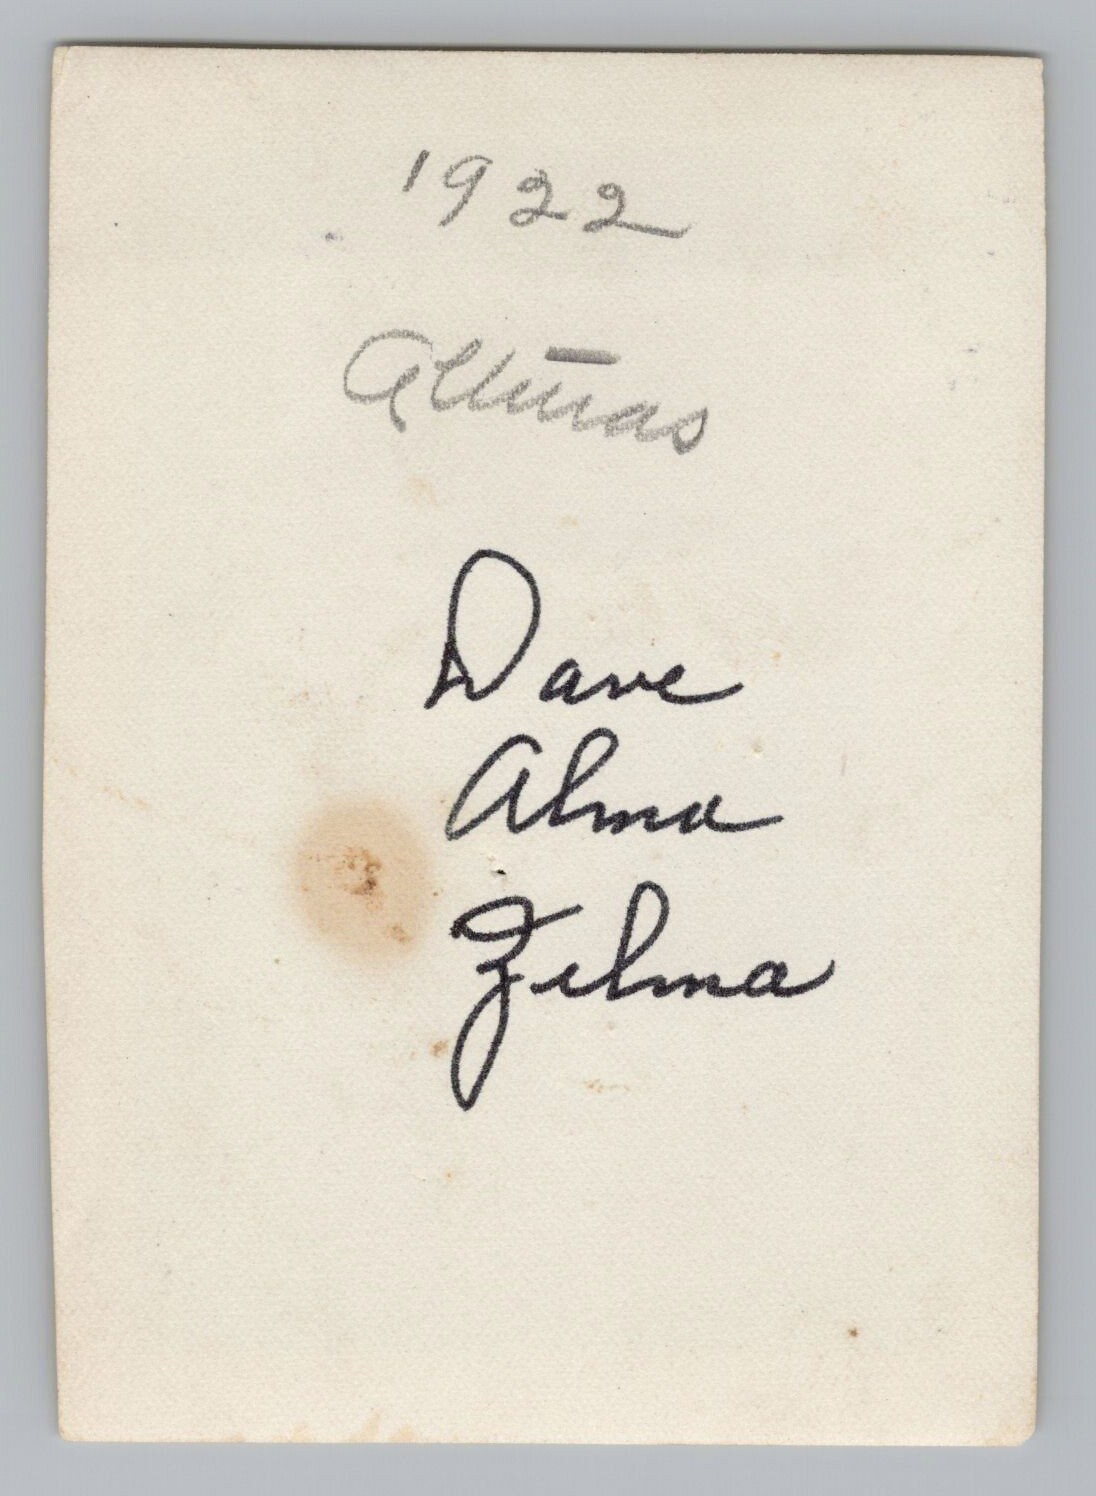 1922
Alturas
Dave
Alma
Zelma